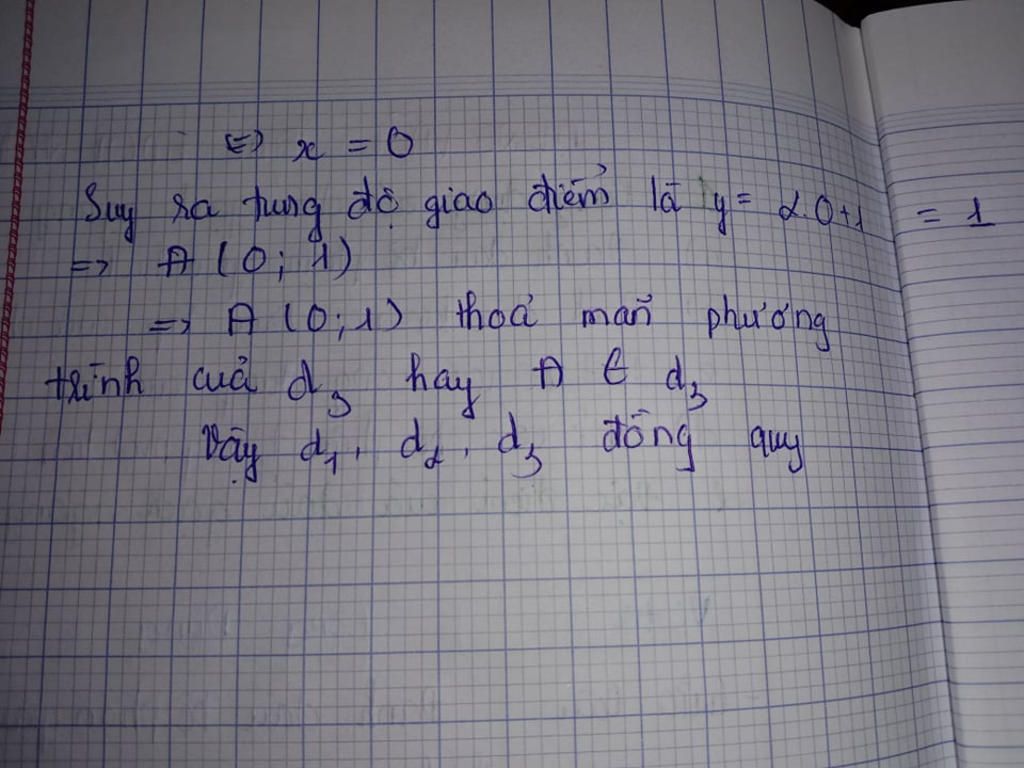 ⇔ x = 0
Suy ra tung độ giao điểm là y = 2.0+1 = 1
=> A (0; 1)
=> A (0; 1) thoả mãn phương
trình cuả d₃ hay A ∈ d₃
Vậy d₁, d₂, d₃ đồng quy